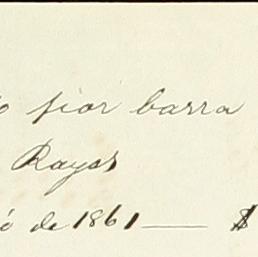 o fior barra
Rayas
ó de 1861 — $